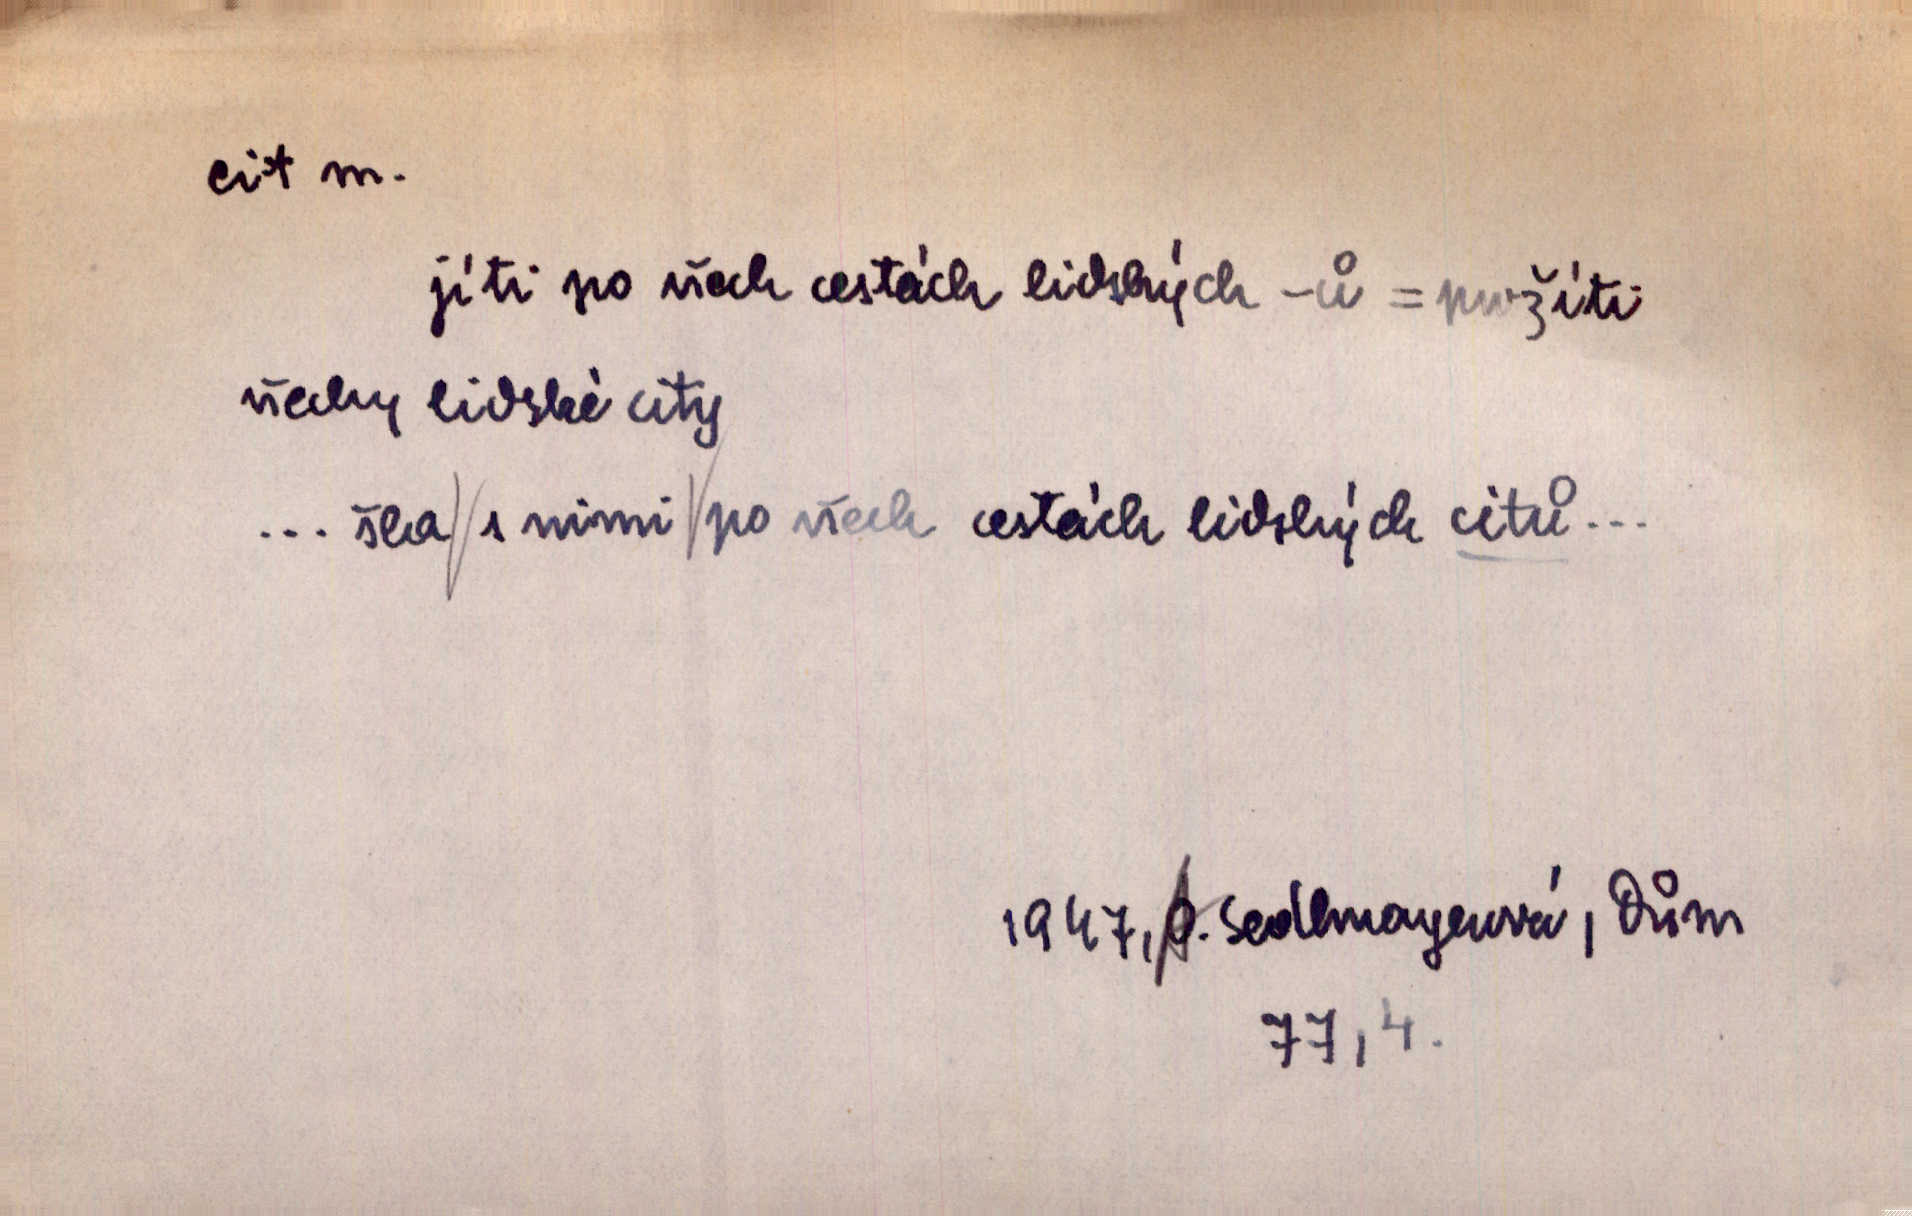 cit m.
jíti po všech cestách lidských -ů = prožíti
všechny lidské city
... šla / s nimi / po všech cestách lidských citů ...
1947, O. Sedlmayerová, Dům
77, 4.